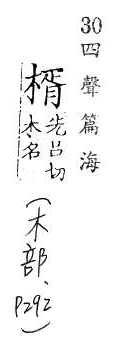 30四聲篇海
楈
先呂切
木名
（木部、P292）